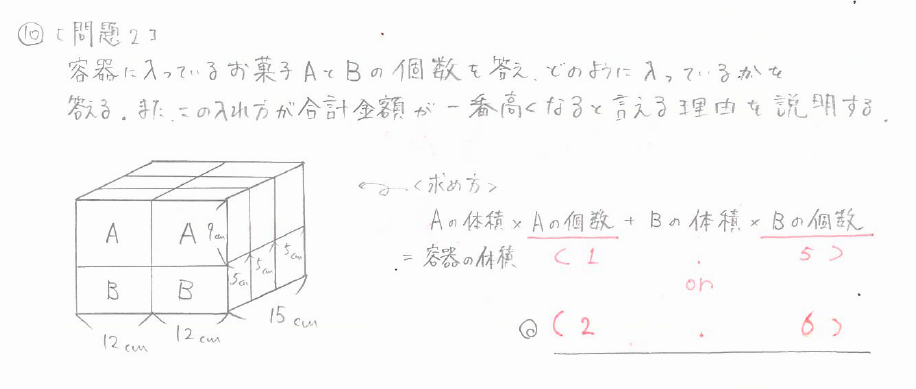 ⑩ [問題2]
容器に入っているお菓子AとBの個数を答え、どのように入っているかを
答える。また、この入れ方が合計金額が一番高くなると言える理由を説明する。
<求め方>
Aの体積×Aの個数+Bの体積×Bの個数
=容器の体積 (1 . 5)
or
◎(2 . 6)
A A 9cm
B B 5cm 5cm 5cm
12cm 12cm 15cm